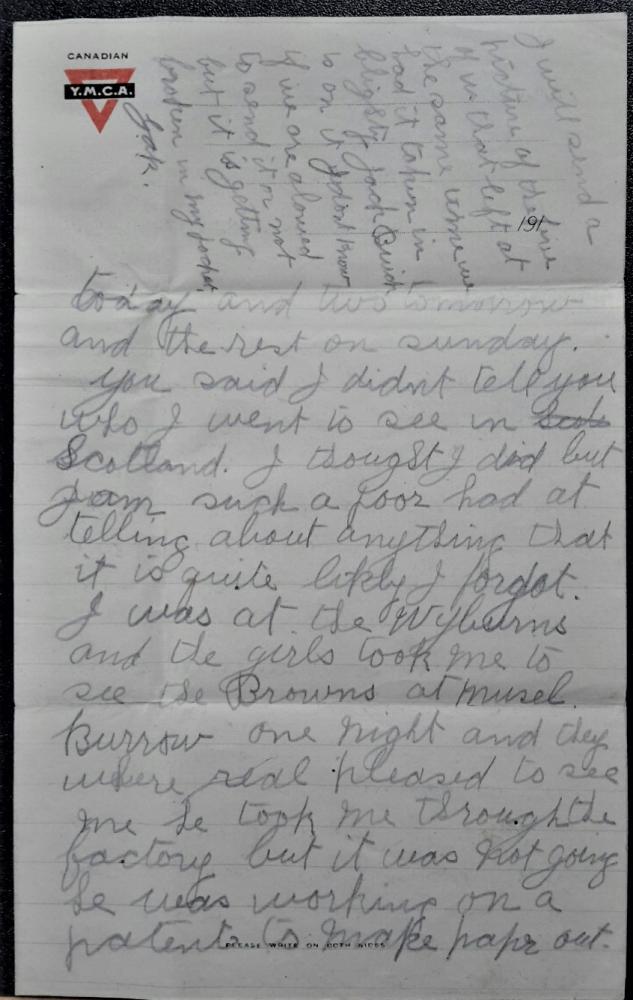 CANADIAN
Y.M.C.A.
I will send a
picture of the five
of us that left at
the same time we
had it taken in
blighty Jack Quick
is on it I dont know
if we are alowed
to send it or not
but it is getting
broken in my pocket
Jak.
191
today and two tomorrow
and the rest on sunday.
You said I didnt tell you
who I went to see in Scot
Scotland. I thought I did but
I am such a poor had at
telling about anything that
it is quite likly I forgot.
I was at the Wyburns
and the girls took me to
see the Browns at Musel
Burrow one night and they
where real pleased to see
me he took me through the
factory but it was not going
he was working on a
patent to make papr out.
PLEASE WRITE ON BOTH SIDES